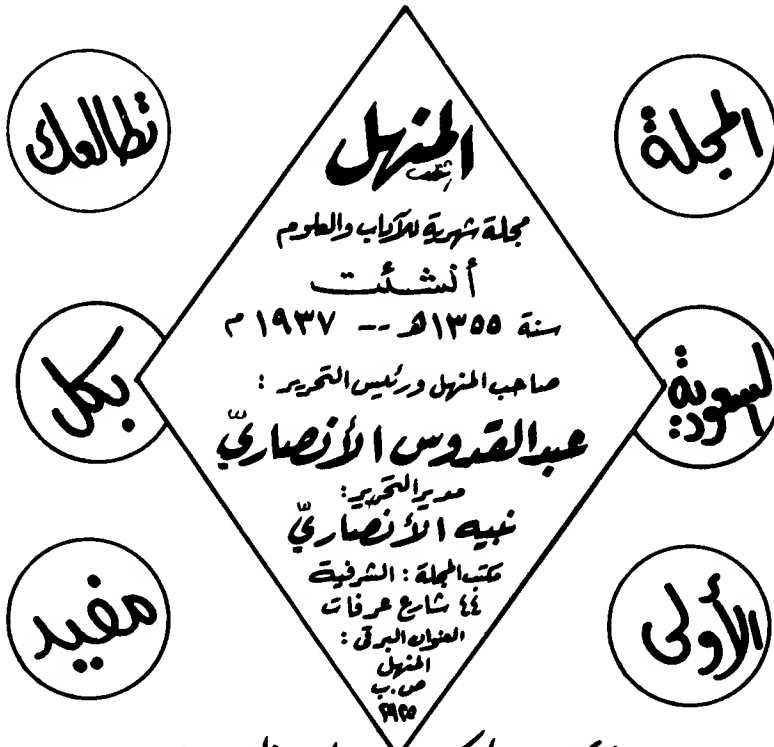 المجلة
السعودية
الأولى
تطالعك
بكل
مفيد
المنهل
مجلة شهرية للآداب والعلوم
أنشئت
سنة ١٣٥٥هـ -- ١٩٣٧ م
صاحب المنهل ورئيس التحرير :
عبدالقدوس الأنصاريّ
مدير التحرير :
نبيه الأنصاريّ
مكتب المجلة : الشرفية
٤٤ شارع عرفات
العنوان البرقى :
المنهل
ص . ب
٢٩٢٥